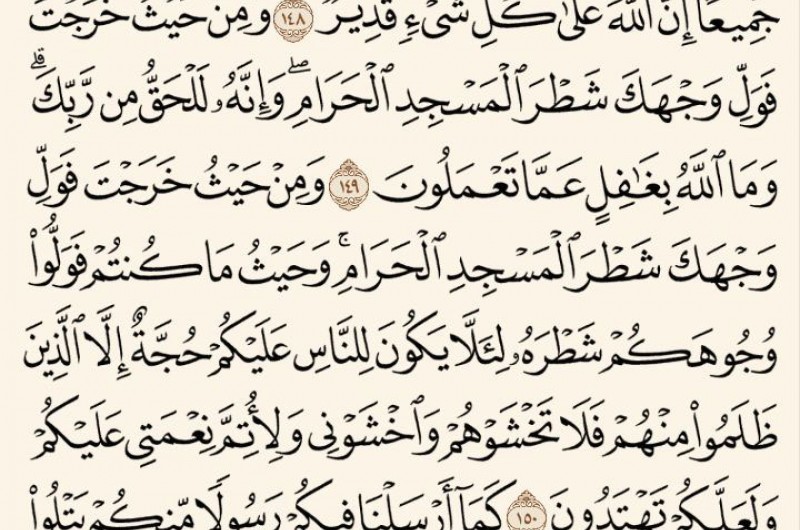 جَمِيعًا إِنَّ ٱللَّهَ عَلَىٰ كُلِّ شَىْءٍ قَدِيرٌ ١٤٨ وَمِنْ حَيْثُ خَرَجْتَ
فَوَلِّ وَجْهَكَ شَطْرَ ٱلْمَسْجِدِ ٱلْحَرَامِ ۖ وَإِنَّهُۥ لَلْحَقُّ مِن رَّبِّكَ ۗ
وَمَا ٱللَّهُ بِغَـٰفِلٍ عَمَّا تَعْمَلُونَ ١٤٩ وَمِنْ حَيْثُ خَرَجْتَ فَوَلِّ
وَجْهَكَ شَطْرَ ٱلْمَسْجِدِ ٱلْحَرَامِ ۚ وَحَيْثُ مَا كُنتُمْ فَوَلُّوا۟
وُجُوهَكُمْ شَطْرَهُۥ لِئَلَّا يَكُونَ لِلنَّاسِ عَلَيْكُمْ حُجَّةٌ إِلَّا ٱلَّذِينَ
ظَلَمُوا۟ مِنْهُمْ فَلَا تَخْشَوْهُمْ وَٱخْشَوْنِى وَلِأُتِمَّ نِعْمَتِى عَلَيْكُمْ
وَلَعَلَّكُمْ تَهْتَدُونَ ١٥٠ كَمَآ أَرْسَلْنَا فِيكُمْ رَسُولًا مِّنكُمْ يَتْلُوا۟